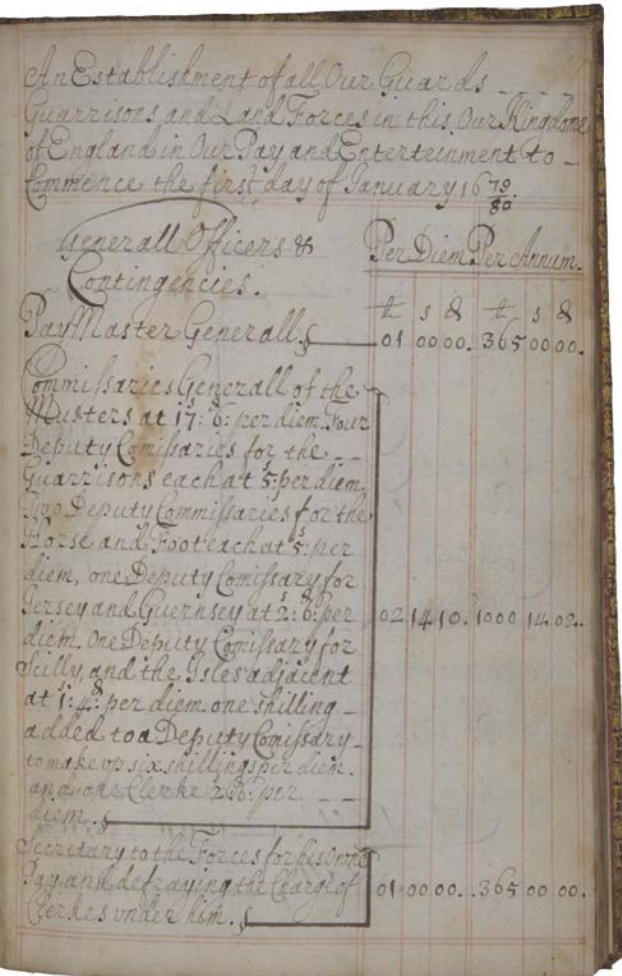 An Establishment of all Our Guards
Guarrisons and Land Forces in this Our Kingdome
of England in Our Pay and Enterteinment to
Commence the first day of January 16 79/80.
Generall Officers &
Contingencies.
Per Diem. Per Annum.
li s d li s d
PayMaster Generall 01 00 00. 365 00 00.
Commissaries Generall of the
Musters at 17s: 6d: per diem. Four
Deputy Comissaries for the
Guarrisons each at 5s: per diem
Two Deputy Commissaries for the
Horse and Foot each at 5s: per
diem, one Deputy Comissary for
Jersey and Guernsey at 2s: 6d: per 02 14 10. 1000 14 02.
diem. One Deputy Comissary for
Scilly, and the Isles adjacent
at 1s: 4d: per diem. one shilling
added to a Deputy Comissary
to make vp six shillings per diem.
and one Clerke 2s 6d: per
diem.
Secretary to the Forces for his Owne
Pay and defraying the Charge of 01 00 00. 365 00 00.
Clerkes vnder him.